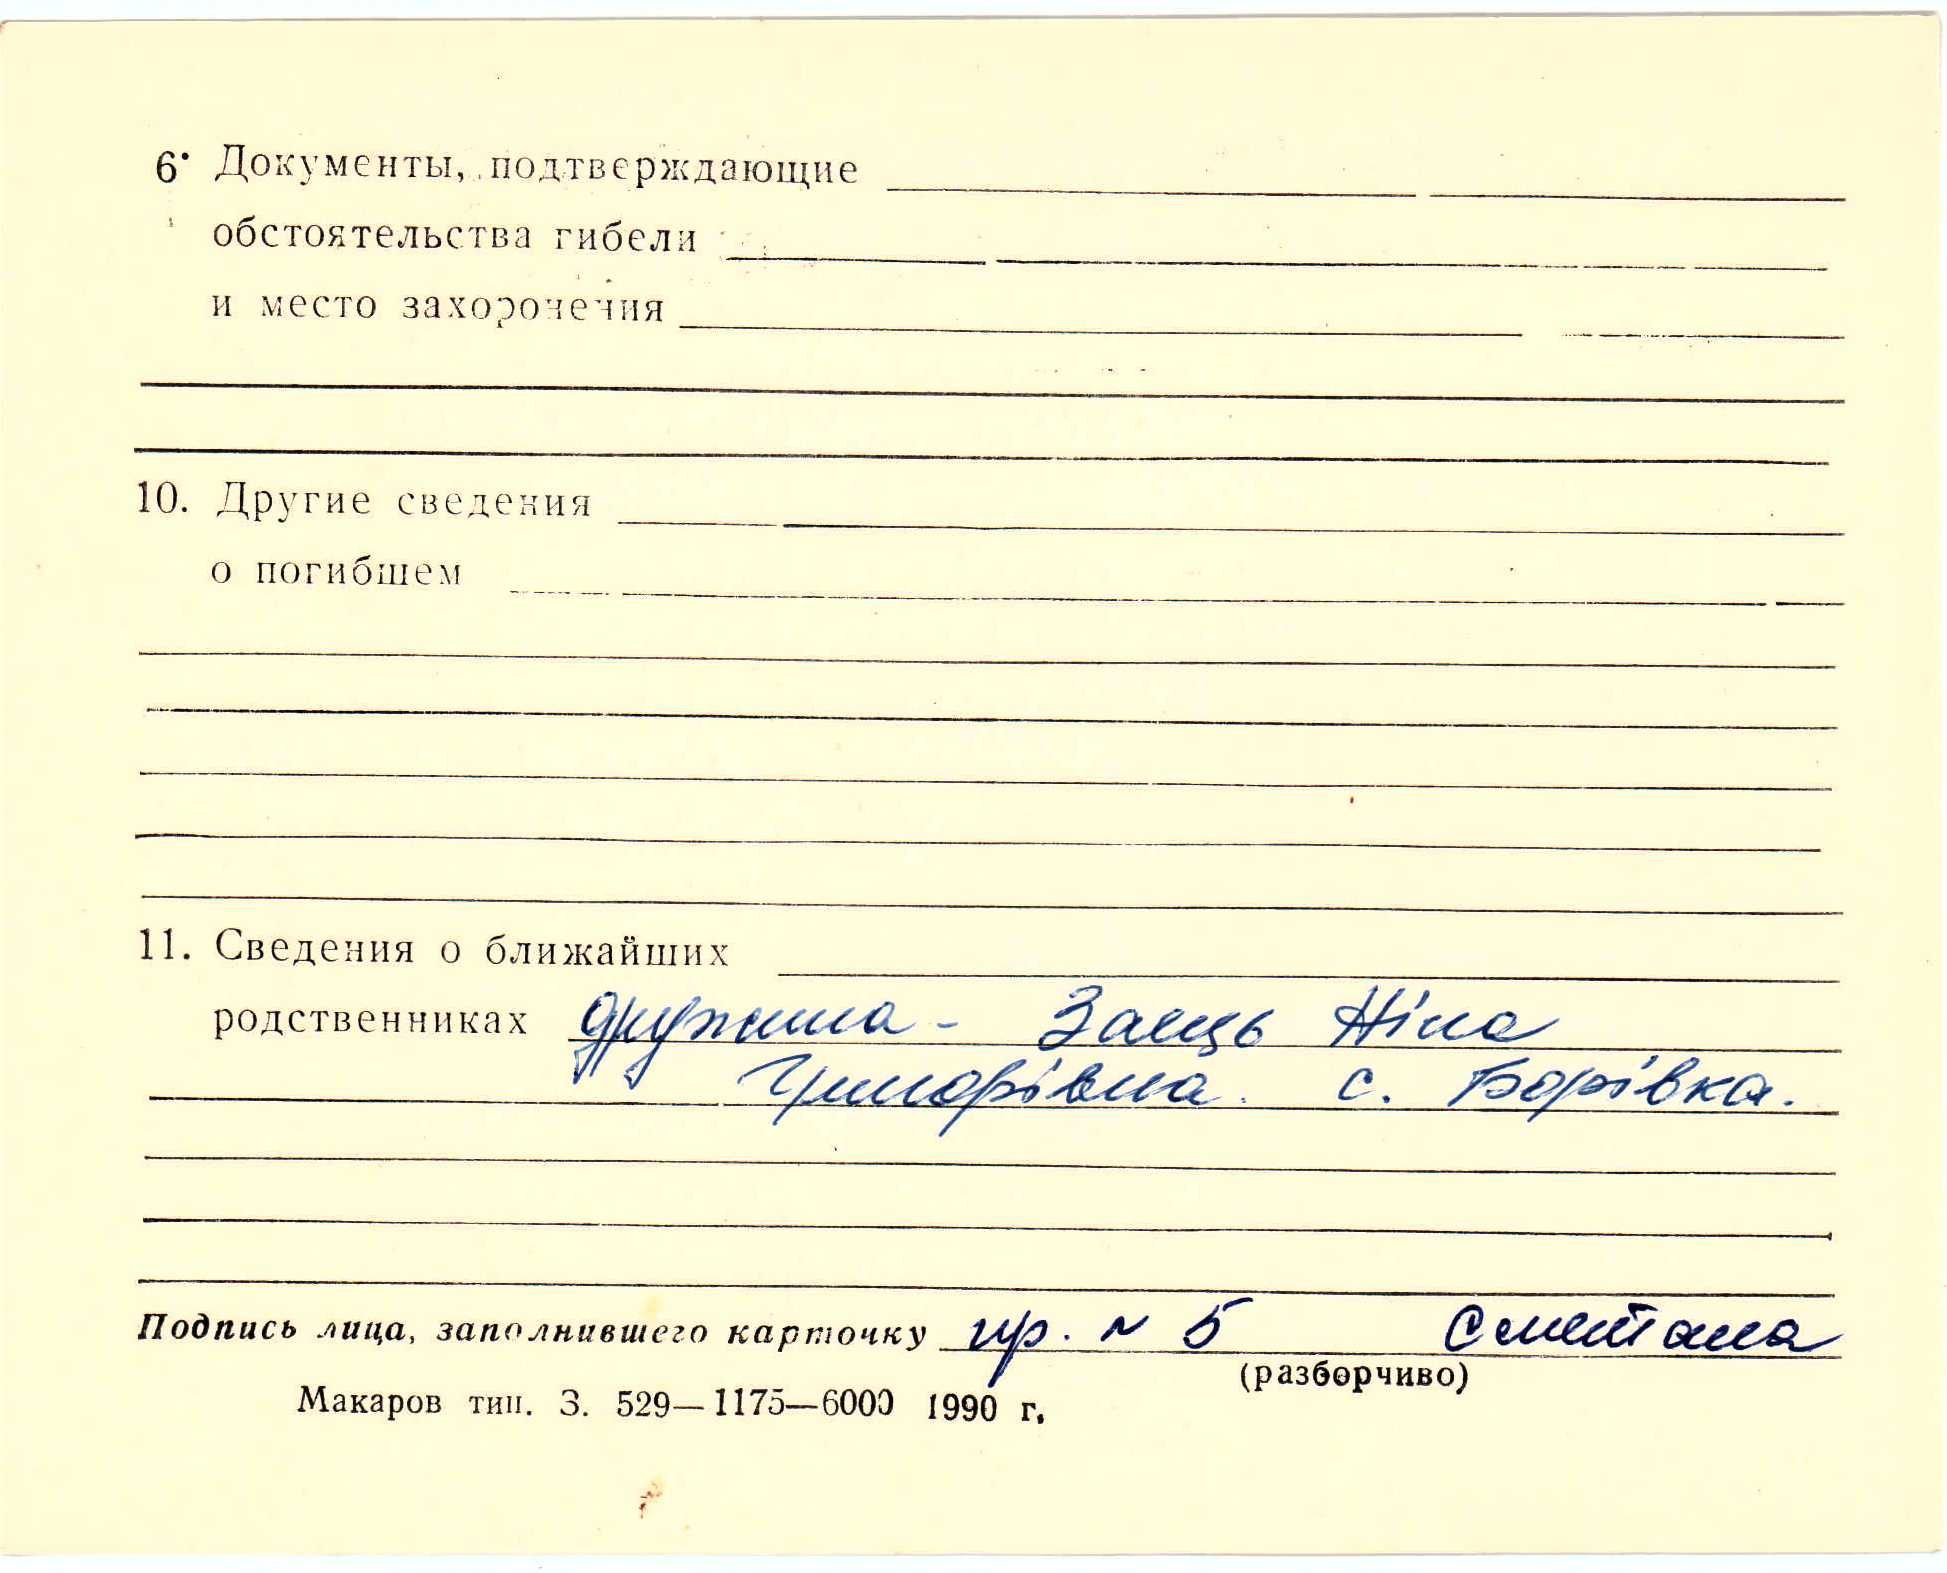 6. Документы, подтверждающие
обстоятельства гибели
и место захоронения
10. Другие сведения
о погибшем
11. Сведения о ближайших
родственниках дружина - Заєць Ніна
с. Борівка.
Подпись лица, заполнившего карточку пр. N 5 Сметана
(разборчиво)
Макаров тип. З. 529—1175—6000 1990 г.